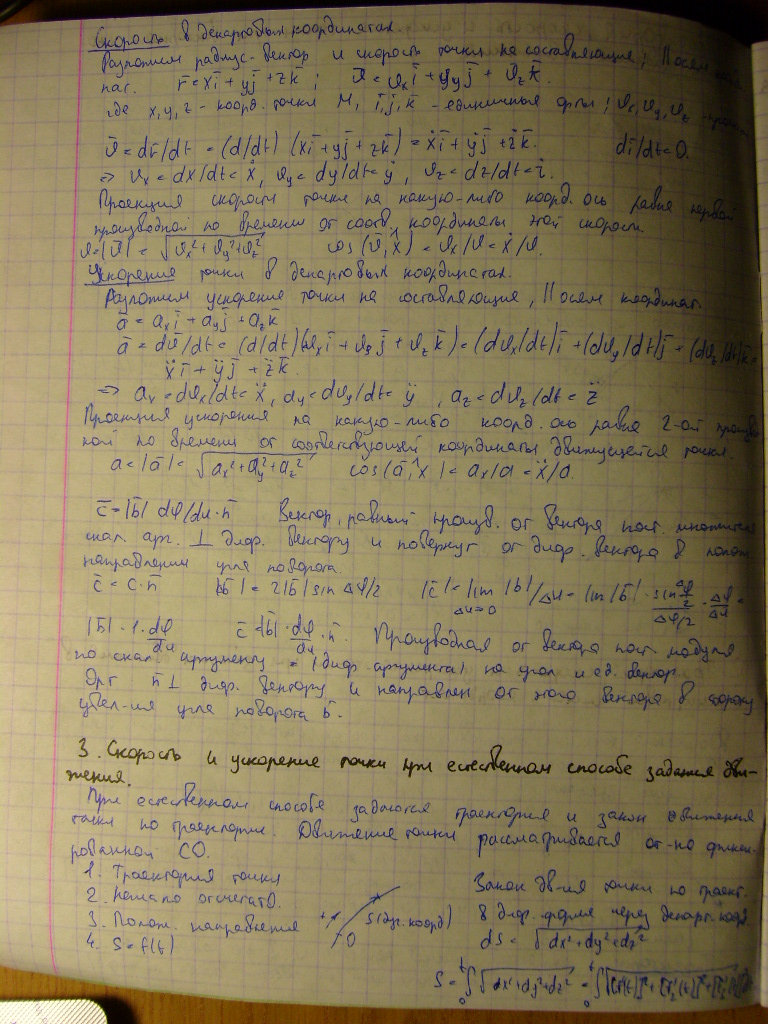 Скорость в декартовых координатах.
Разложим радиус-вектор и скорость точки на составляющие, || осям
нат. r̄ = xī + yj̄ + zk̄ ; ϑ̄ = ϑₓī + ϑᵧj̄ + ϑ_z k̄.
где x, y, z - коорд. точки M, ī, j̄, k̄ - единичные орты; ϑₓ, ϑᵧ, ϑ_z
ϑ̄ = dr̄/dt = (d/dt) (xī + yj̄ + zk̄) = ẋī + ẏj̄ + żk̄. dī/dt = 0.
=> ϑₓ = dx/dt = ẋ, ϑᵧ = dy/dt = ẏ, ϑ_z = dz/dt = ż.
Проекция скорости точки на какую-либо коорд. ось равна первой
производной по времени от соотв. координаты этой скорости.
ϑ = |ϑ̄| = √(ϑₓ² + ϑᵧ² + ϑ_z²) cos(ϑ̄,^x̄) = ϑₓ/ϑ = ẋ/ϑ.
Ускорение точки в декартовых координатах.
Разложим ускорение точки на составляющие, || осям координат
ā = aₓī + aᵧj̄ + a_z k̄
ā = dϑ̄/dt = (d/dt)(ϑₓī + ϑᵧj̄ + ϑ_z k̄) = (dϑₓ/dt)ī + (dϑᵧ/dt)j̄ + (dϑ_z/dt)k̄ =
ẍī + ÿj̄ + z̈k̄.
=> aₓ = dϑₓ/dt = ẍ, aᵧ = dϑᵧ/dt = ÿ, a_z = dϑ_z/dt = z̈
Проекция ускорения на какую-либо коорд. ось равна 2-ой производ
ной по времени от соответствующей координаты движущейся точки.
a = |ā| = √(aₓ² + aᵧ² + a_z²) cos(ā,^x) = aₓ/a = ẍ/a.
c̄ = |b̄| dφ/du · n̄ Вектор, равный произв. от вектора пост. множителя
скал. арг. ⊥ диф. вектору и повернут от диф. вектора в полож.
направлении угла поворота.
c̄ = c · n̄ |Δb̄| = 2|b̄| sin Δφ/2 |c̄| = lim Δu→0 |b|/Δu = lim |b̄| · sin Δφ/2 / Δφ/2 · Δφ/Δu =
|b̄| · 1 · dφ/du c̄ = |b̄| · dφ/du · n̄. Производная от вектора пост. модуля
по скал аргументу = (диф. аргумента) на угол и ед. вектор.
Орт n̄ ⊥ диф. вектору и направлен от этого вектора в сторону
увел-ия угла поворота b̄.
3. Скорость и ускорение точки при естественном способе задания дви-
жения.
При естественном способе задаются траектория и закон движения
точки по траектории. Движение точки рассматривается от-но фикси-
рованной СО.
1. Траектория точки
2. Начало отсчета O.
3. Полож. направления
4. S = f(t)
+ O S (дуг. коорд)
Закон дв-ия точки по траект.
в диф. форме через декарт. коорд.
dS = √(dx² + dy² + dz²)
S = ₀∫ᵗ √(dx² + dy² + dz²) = ₀∫ᵗ